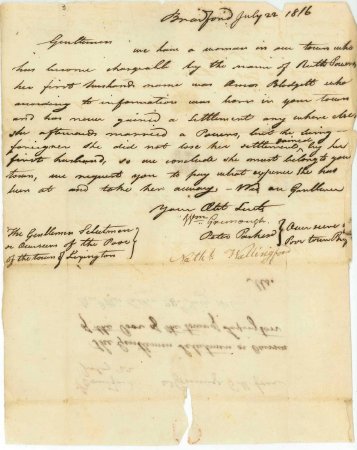 Bradford July 22 1816
Gentlemen
we have a woman in our town who
has become chargeable by the name of Ruth Powers
her first husbands name was Amos Blodgett who
according to information was born in your town
and has never gained a Settlement any where else
she afterwards married a Powers, but he being
foreigner she did not lose her settlement gained by her
first husband, so we conclude she must belong to your
town, we request you to pay what expence she has
been at and take her away - We are Gentlemen
Your Obt Servts
Wm
Peter Parker
Nathl
Overseers
Poor town
The Gentlemen Selectmen
or Overseers of the Poor
of the town of Lexington
The Gentlemen Selectmen or Overseers
of the Poor of the town of Lexington